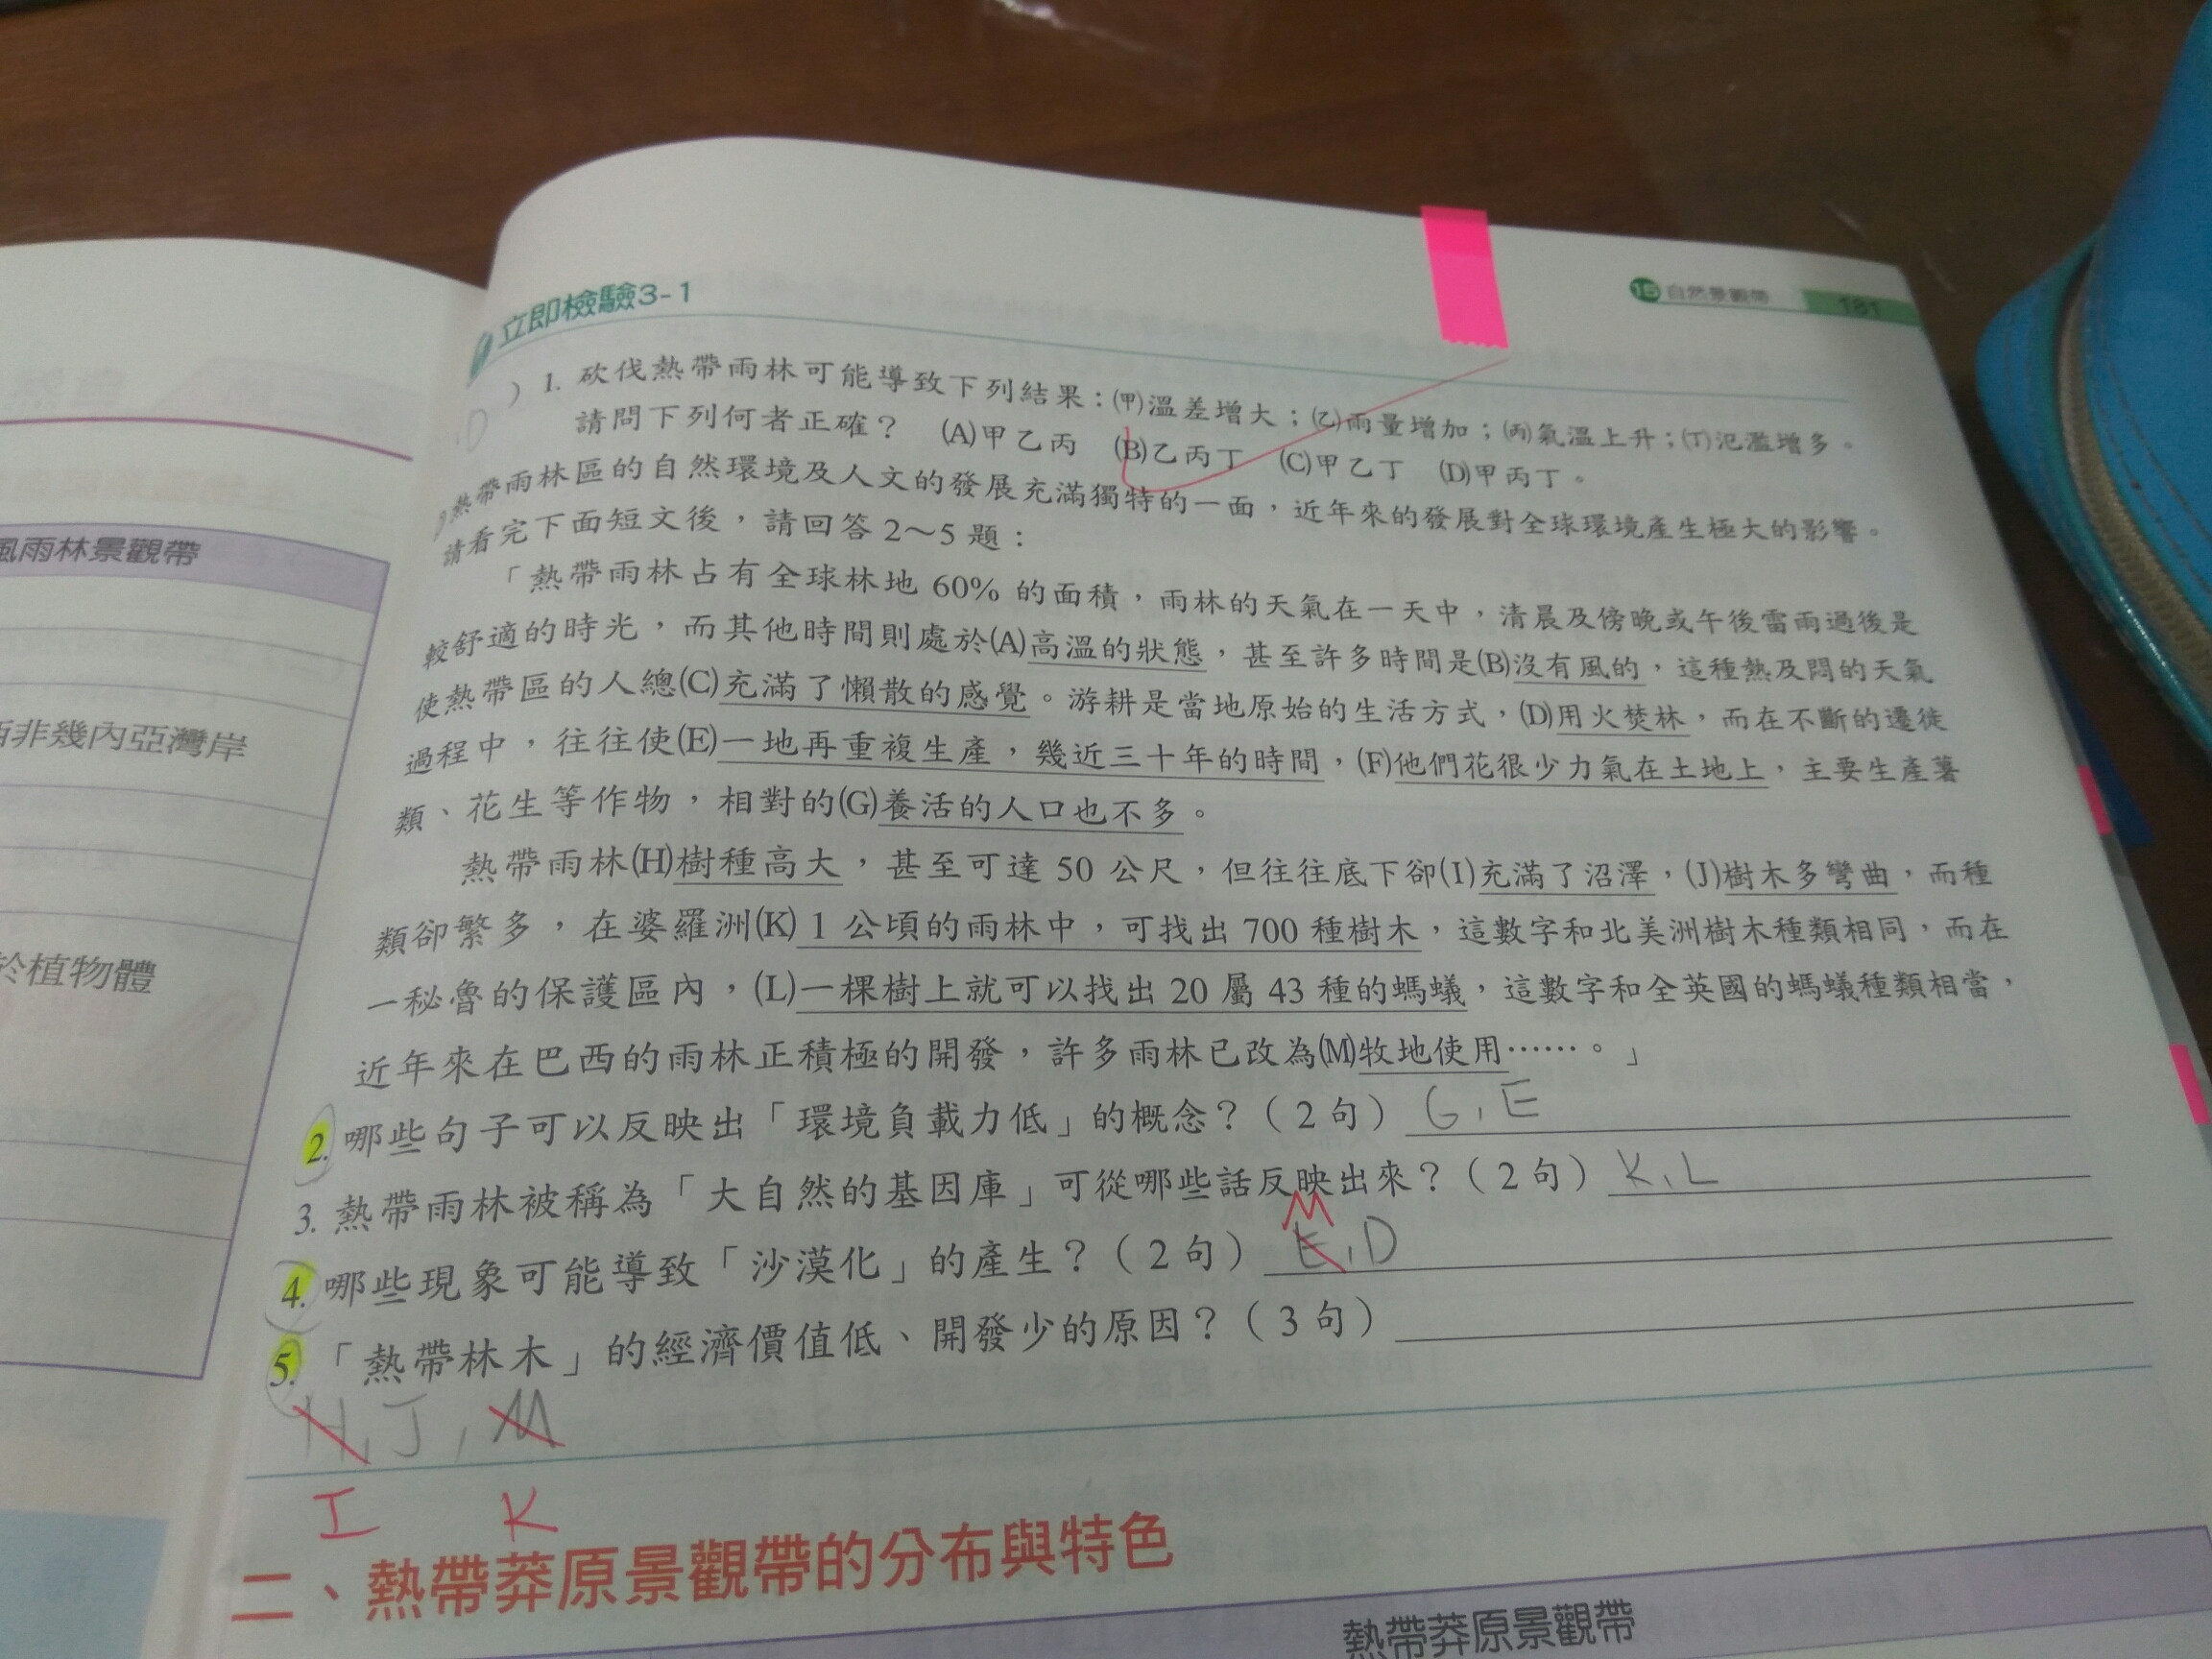 15 自然景觀帶 181
立即檢驗3-1
D
）1. 砍伐熱帶雨林可能導致下列結果：(甲)溫差增大；(乙)雨量增加；(丙)氣溫上升；(丁)氾濫增多。
請問下列何者正確？ (A)甲乙丙 (B)乙丙丁 (C)甲乙丁 (D)甲丙丁。
熱帶雨林區的自然環境及人文的發展充滿獨特的一面，近年來的發展對全球環境產生極大的影響。
請看完下面短文後，請回答2～5題：
「熱帶雨林占有全球林地 60% 的面積，雨林的天氣在一天中，清晨及傍晚或午後雷雨過後是
較舒適的時光，而其他時間則處於(A)高溫的狀態，甚至許多時間是(B)沒有風的，這種熱及悶的天氣
使熱帶區的人總(C)充滿了懶散的感覺。游耕是當地原始的生活方式，(D)用火焚林，而在不斷的遷徙
過程中，往往使(E)一地再重複生產，幾近三十年的時間，(F)他們花很少力氣在土地上，主要生產薯
類、花生等作物，相對的(G)養活的人口也不多。
熱帶雨林(H)樹種高大，甚至可達 50 公尺，但往往底下卻(I)充滿了沼澤，(J)樹木多彎曲，而種
類卻繁多，在婆羅洲(K) 1 公頃的雨林中，可找出 700 種樹木，這數字和北美洲樹木種類相同，而在
一秘魯的保護區內，(L)一棵樹上就可以找出 20 屬 43 種的螞蟻，這數字和全英國的螞蟻種類相當，
近年來在巴西的雨林正積極的開發，許多雨林已改為(M)牧地使用……。」
2. 哪些句子可以反映出「環境負載力低」的概念？（2句）G、E
3. 熱帶雨林被稱為「大自然的基因庫」可從哪些話反映出來？（2句）K、L
M
4. 哪些現象可能導致「沙漠化」的產生？（2句）E、D
5. 「熱帶林木」的經濟價值低、開發少的原因？（3句）
H、J、M
I K
二、熱帶莽原景觀帶的分布與特色
熱帶莽原景觀帶
風雨林景觀帶
西非幾內亞灣岸
於植物體